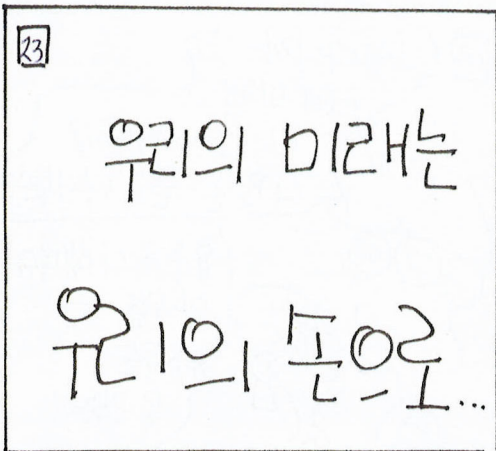 23
우리의 미래는
우리의 돈으로...